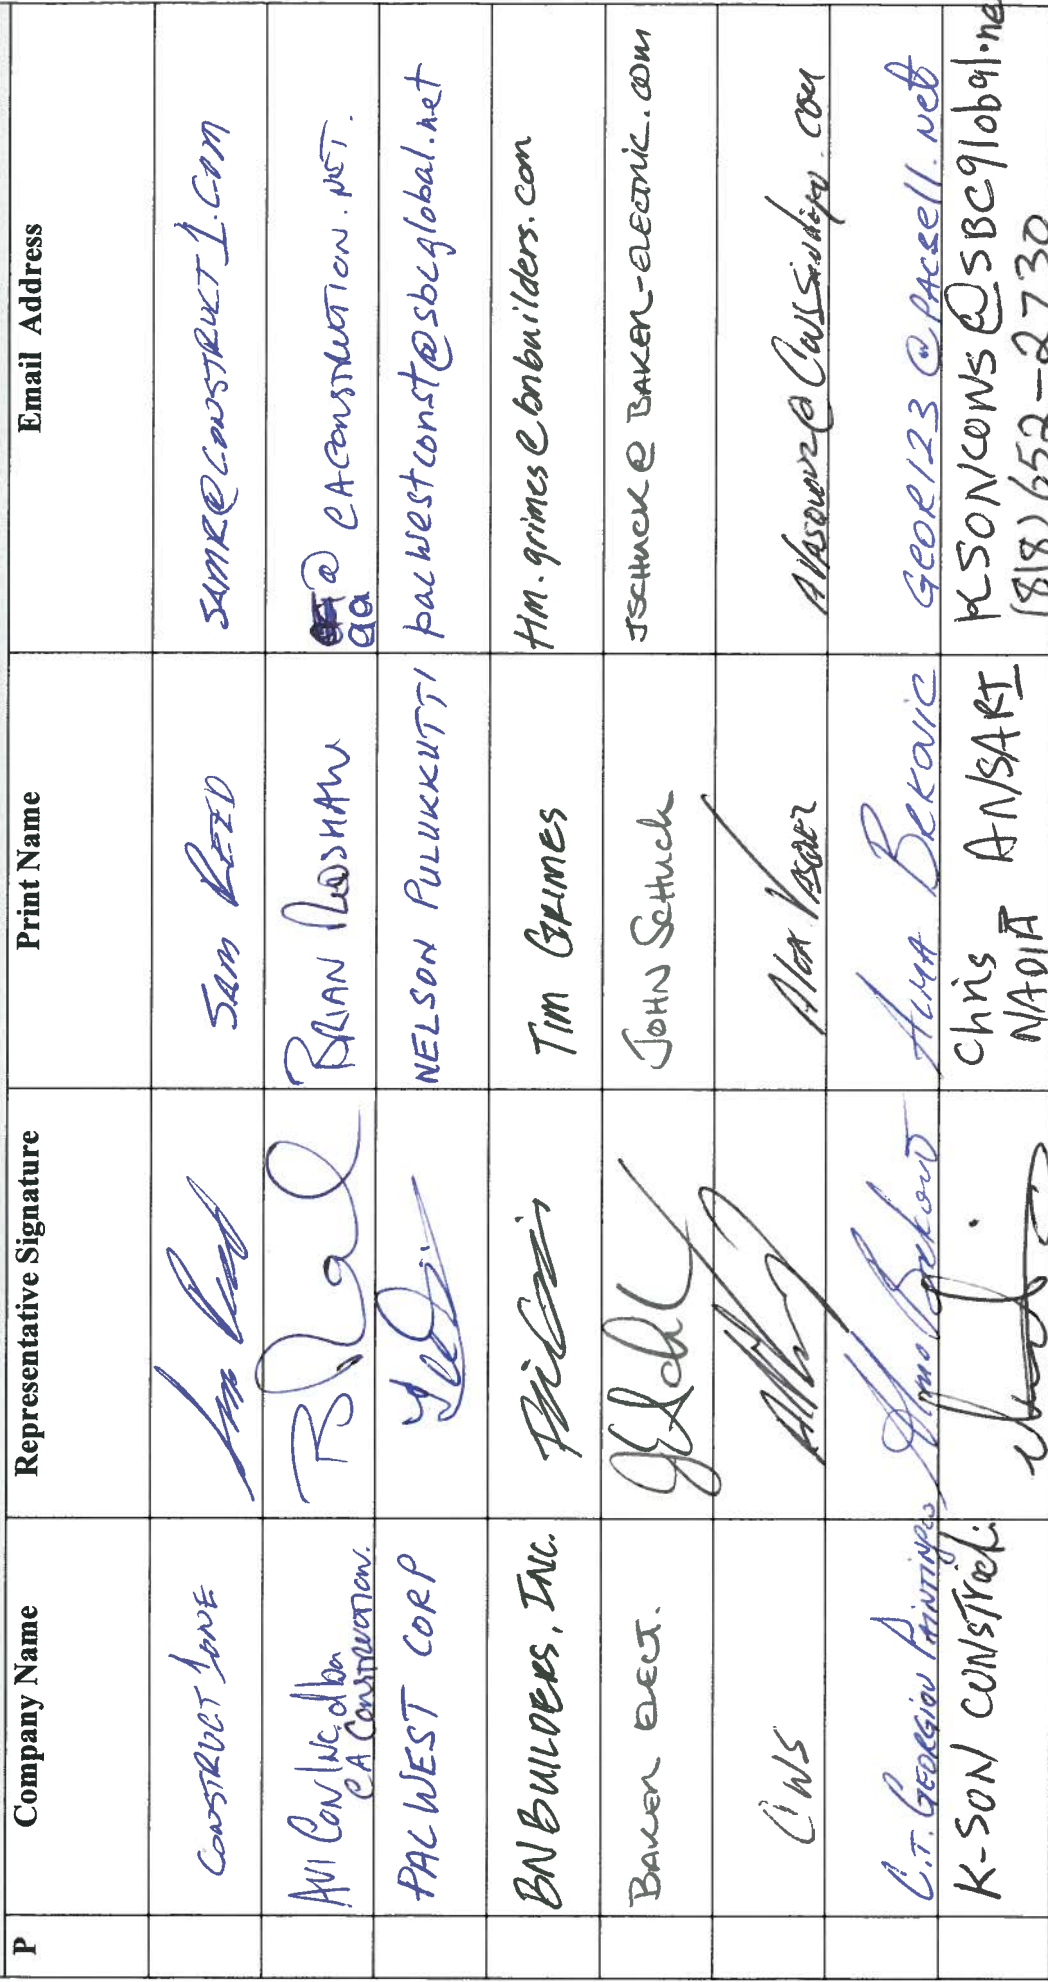 P Company Name Representative Signature Print Name Email Address
CONSTRUCT 1ONE SAM REED SAMR@CONSTRUCT1.COM
AVI CON INC. dba CA CONSTRUCTION. BRIAN ga@CACONSTRUCTION.NET.
PAC WEST CORP NELSON PULUKKUTTI pacwestconst@sbcglobal.net
BNBUILDERS, INC. TIM GRIMES tim.grimes@bnbuilders.com
BAKER ELECT. JOHN SCHUCK JSCHUCK@BAKER-ELECTRIC.COM
CWS ALEX
C.T. GEORGIOU PAINTING CO ALMA BEKOVIC GEOR123@PACBELL.NET
K-SON CONSTRUCTI Chris NADIA ANSARI KSONCONS@SBCGlobal.ne
(818) 652-2730